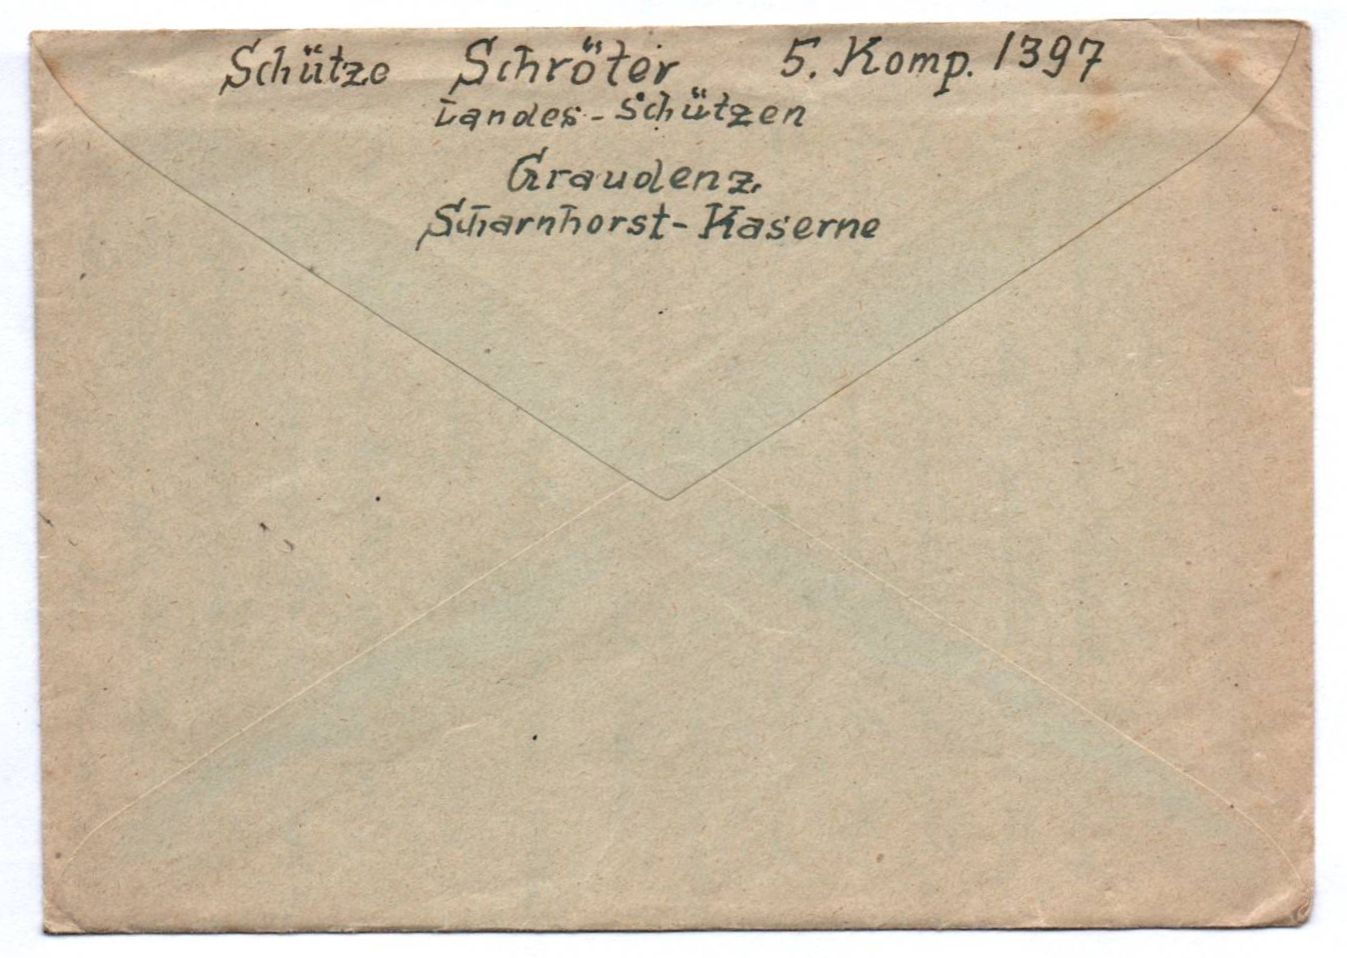 Schütze Schröter 5. Komp. 1397
Landes-Schützen
Graudenz,
Scharnhorst-Kaserne